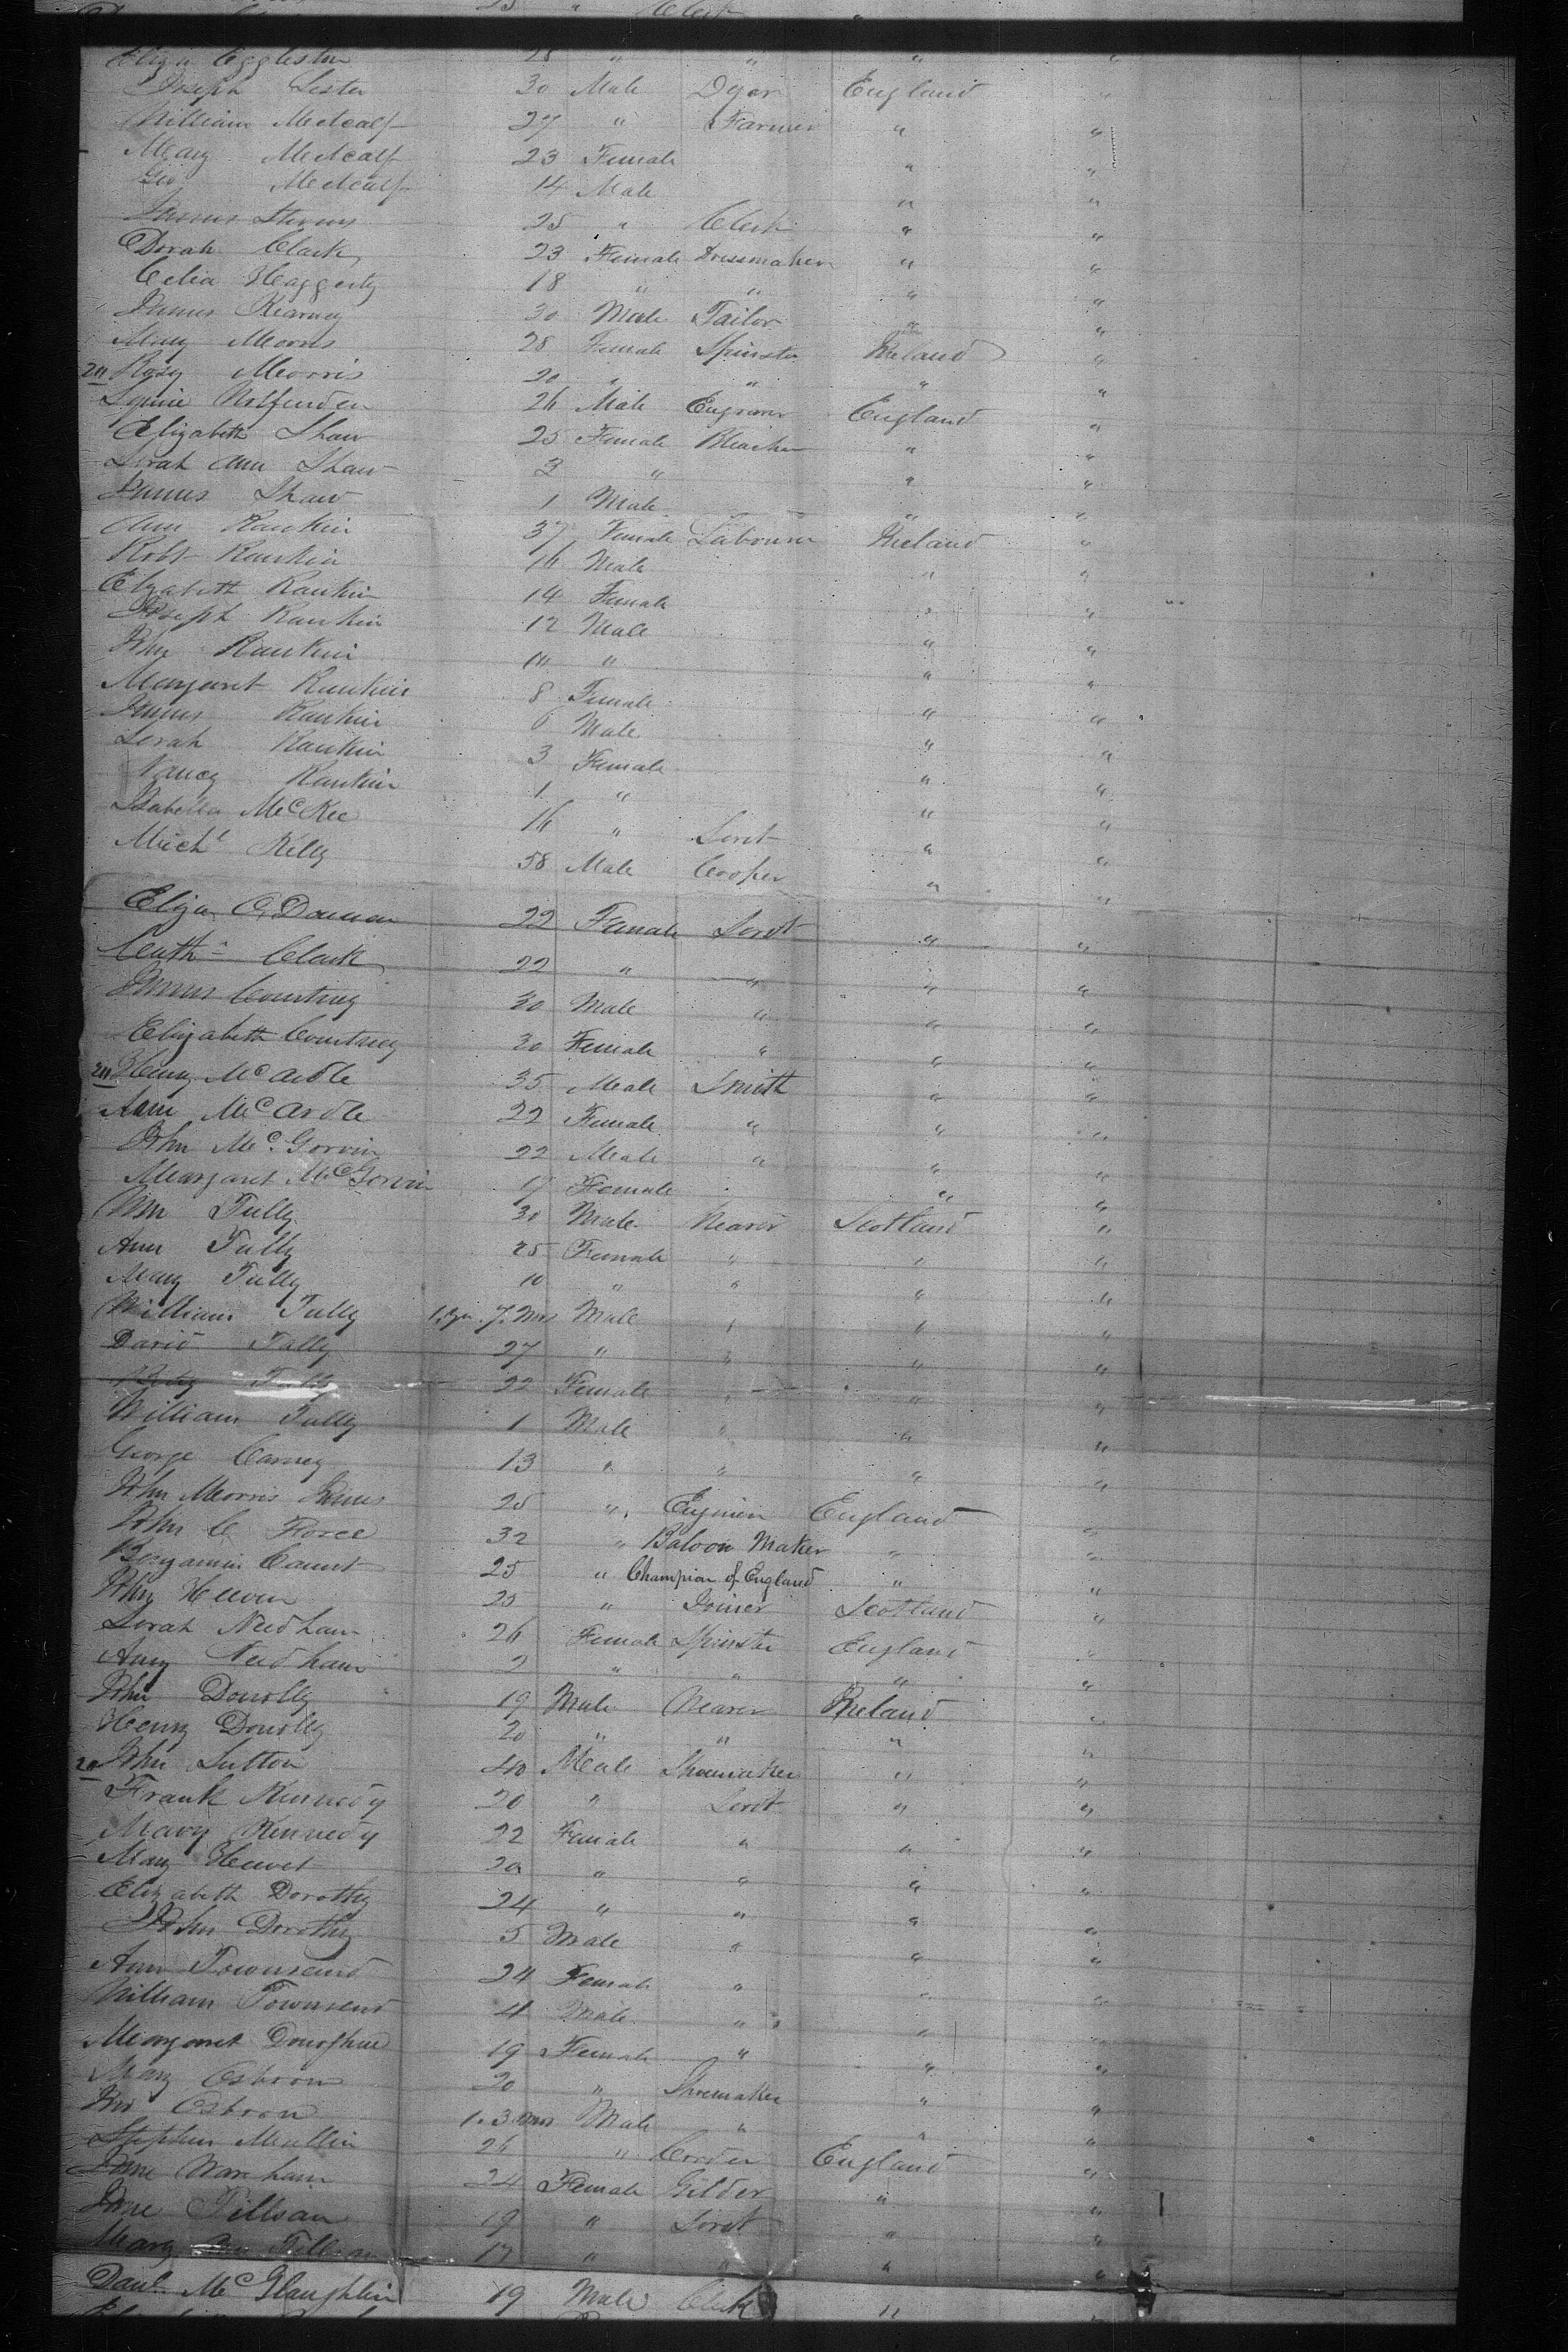 25 " Clerk
Eliza Eggleston 25 " " " "
Joseph Lester 30 Male Dyer England "
William Metcalf 27 " Farmer " "
Mary Metcalf 23 Female " "
Geo Metcalf 14 Male " "
James Stevens 25 " Clerk " "
Dorah Clark 23 Female Dressmaker " "
Celia Haggerty 18 " " " "
James Kearney 30 Male Tailor " "
Mary Morris 28 Female Spinster Ireland "
Rosy Morris 20 " " " "
Squire Wolfenden 26 Male Engraver England "
Elizabeth Shaw 25 Female Bleacher " "
Sarah Ann Shaw 3 " " "
James Shaw 1 Male " "
Ann Rankin 37 Female Labourer Ireland "
Robt Rankin 16 Male " "
Elizabeth Rankin 14 Female " "
Joseph Rankin 12 Male " "
John Rankin 10 " " "
Margaret Rankin 8 Female " "
James Rankin 6 Male " "
Sarah Rankin 3 Female " "
Nancy Rankin 1 " " "
Isabella McKee 16 " Servt " "
Michl Kelly 58 Male Cooper " "
Eliza 22 Female Servt " "
Cath Clark 22 " " " "
James Courtney 30 Male " " "
Elizabeth Courtney 30 Female " " "
Henry McArdle 35 Male Smith " "
Ann McArdle 22 Female " " "
John McGorvin 22 Male " " "
Margaret McGorvin 19 Female " "
Wm Tully 30 Male Weaver Scotland "
Ann Tully 25 Female " " "
Mary Tully 10 " " " "
William Tully 1 yr. 7. Mos Male " " "
David Tully 27 " " " "
Betsy Tully 22 Female " " "
William Tully 1 Male " " "
George Carney 13 " " " "
John Morris James 25 " Engineer England "
John C Force 32 " Baloon Maker " "
Benjamin Caunt 25 " Champion of England " "
John Heeven 25 " Joiner Scotland "
Sarah Needham 26 Female Spinster England "
Amy Needham 2 " " " "
John Donolly 19 Male Weaver Ireland "
Henry Donolly 20 " " " "
John Sutton 40 Male Shoemaker " "
Frank Kennedy 20 " Servt " "
Mary Kennedy 22 Female " " "
Mary 20 " " " "
Elizabeth Dorothy 24 " " " "
John Dorothy 5 Male " " "
Ann Townsend 24 Female " " "
William Townsend 4 Male " " "
Margaret Donoghue 19 Female " " "
Mary Osbron 20 " Shoemaker " "
Jno Osbron 1. 3 mos Male " " "
Stephen Mullin 26 " England "
Jane Wareham 24 Female Gilder " "
Jane Tillson 19 " Servt " "
Mary Ann 17 " " " "
Danl McGlaughlin 19 Male Clerk " "